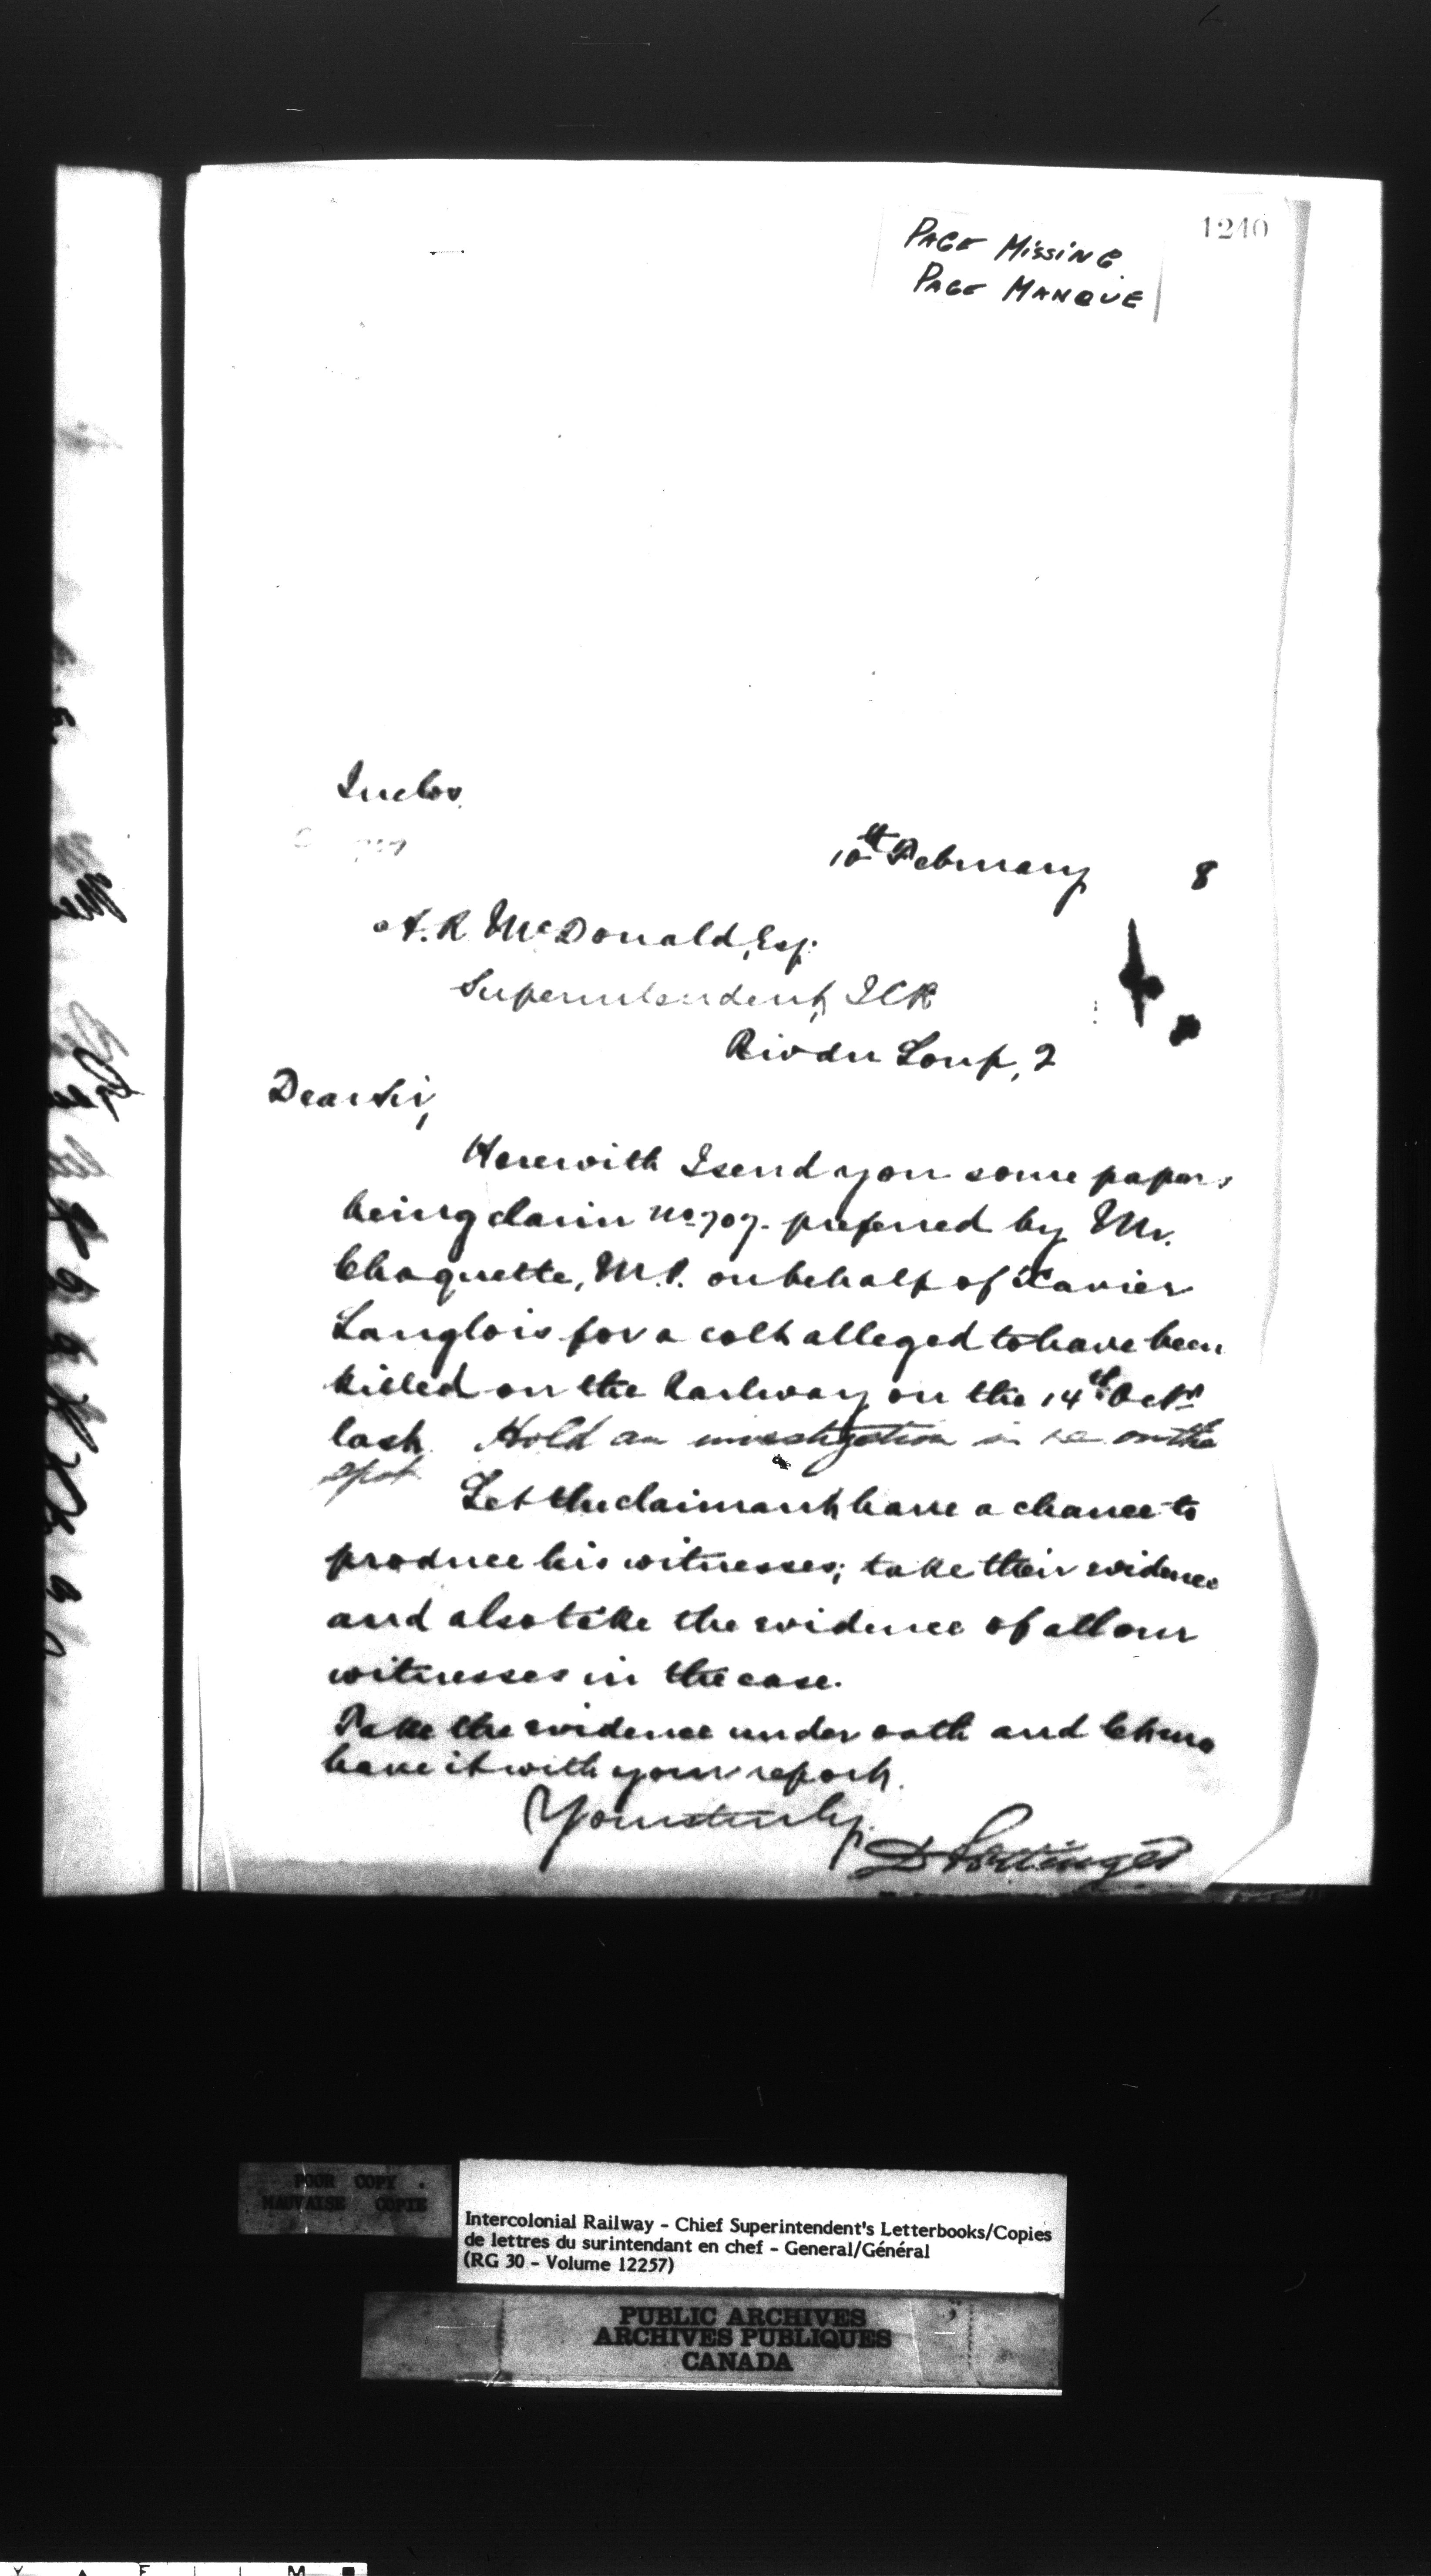 1240
PAGE MISSING
PAGE MANQUE
Inclos
10th February 8
A. R McDonald, Esq.
Superintendent, ICR
Riv du Loup, 2
Dear Sir,
Herewith I send you some papers
being claim No 707. preferred by Mr.
Choquette, M.P. on behalf of Xavier
Langlois for a colt alleged to have been
killed on the Railway on the 14th Octr
last. Hold an investigation in re on the
spot
Let the claimant have a chance to
produce his witnesses; take their evidence
and also take the evidence of all our
witnesses in the case.
Take the evidence under oath and let me
have it with your report.
Yours truly,
D Pottinger
POOR COPY
MAUVAISE COPIE
Intercolonial Railway - Chief Superintendent's Letterbooks/Copies
de lettres du surintendant en chef - General/Général
(RG 30 - Volume 12257)
PUBLIC ARCHIVES
ARCHIVES PUBLIQUES
CANADA